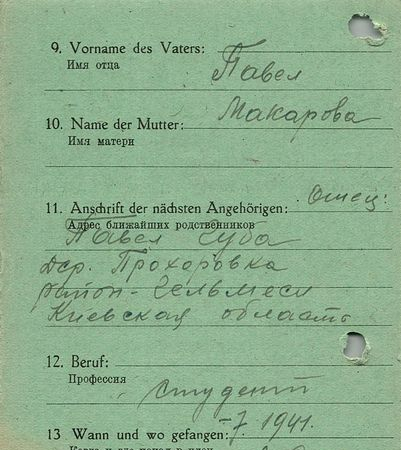 9. Vorname des Vaters:
Имя отца
Павел
Макарова
10. Name der Mutter:
Имя матери
11. Anschrift der nächsten Angehörigen: Отец:
Адрес ближайших родственников
Павел Чуба
дер. Прохоровка
район-Гельмеси
Киевская область
12. Beruf:
Профессия
студент
13 Wann und wo gefangen: -7 1941.